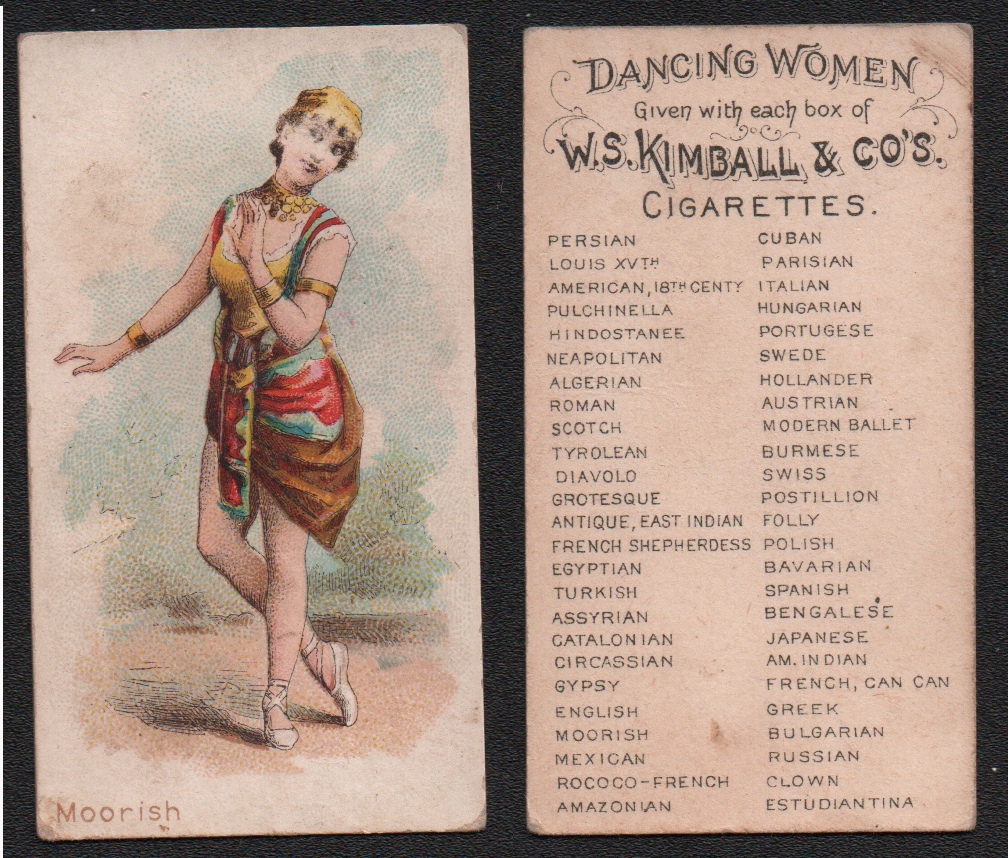 Moorish
DANCING WOMEN
Given with each box of
W.S. KIMBALL & CO'S.
CIGARETTES.
PERSIAN
LOUIS XVTH
AMERICAN, 18TH CENTY
PULCHINELLA
HINDOSTANEE
NEAPOLITAN
ALGERIAN
ROMAN
SCOTCH
TYROLEAN
DIAVOLO
GROTESQUE
ANTIQUE, EAST INDIAN
FRENCH SHEPHERDESS
EGYPTIAN
TURKISH
ASSYRIAN
CATALONIAN
CIRCASSIAN
GYPSY
ENGLISH
MOORISH
MEXICAN
ROCOCO-FRENCH
AMAZONIAN
CUBAN
PARISIAN
ITALIAN
HUNGARIAN
PORTUGESE
SWEDE
HOLLANDER
AUSTRIAN
MODERN BALLET
BURMESE
SWISS
POSTILLION
FOLLY
POLISH
BAVARIAN
SPANISH
BENGALESE
JAPANESE
AM. INDIAN
FRENCH, CAN CAN
GREEK
BULGARIAN
RUSSIAN
CLOWN
ESTUDIANTINA